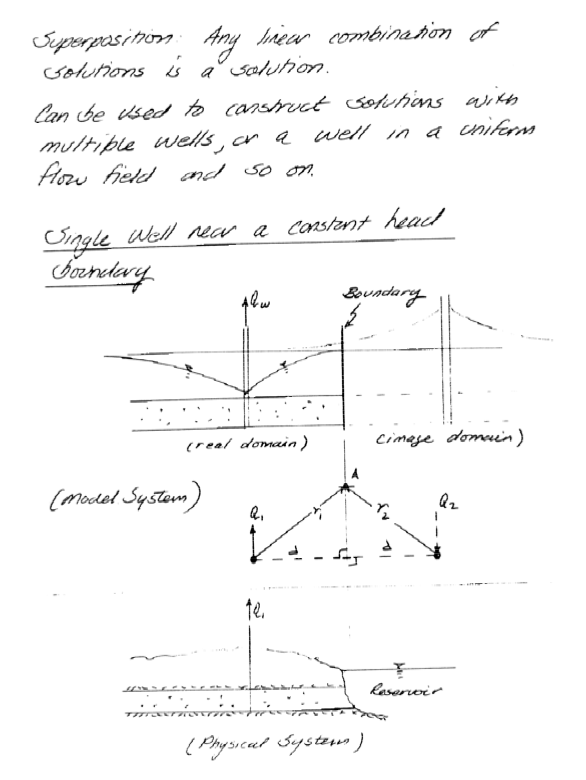 Superposition: Any linear combination of
solutions is a solution.
Can be used to construct solutions with
multiple wells, or a well in a uniform
flow field and so on.
Single Well near a constant head
boundary
Qw
Boundary
(real domain)
(image domain)
A
(Model System)
Q1
r1
r2
Q2
d
d
Q1
Reservoir
(Physical System)